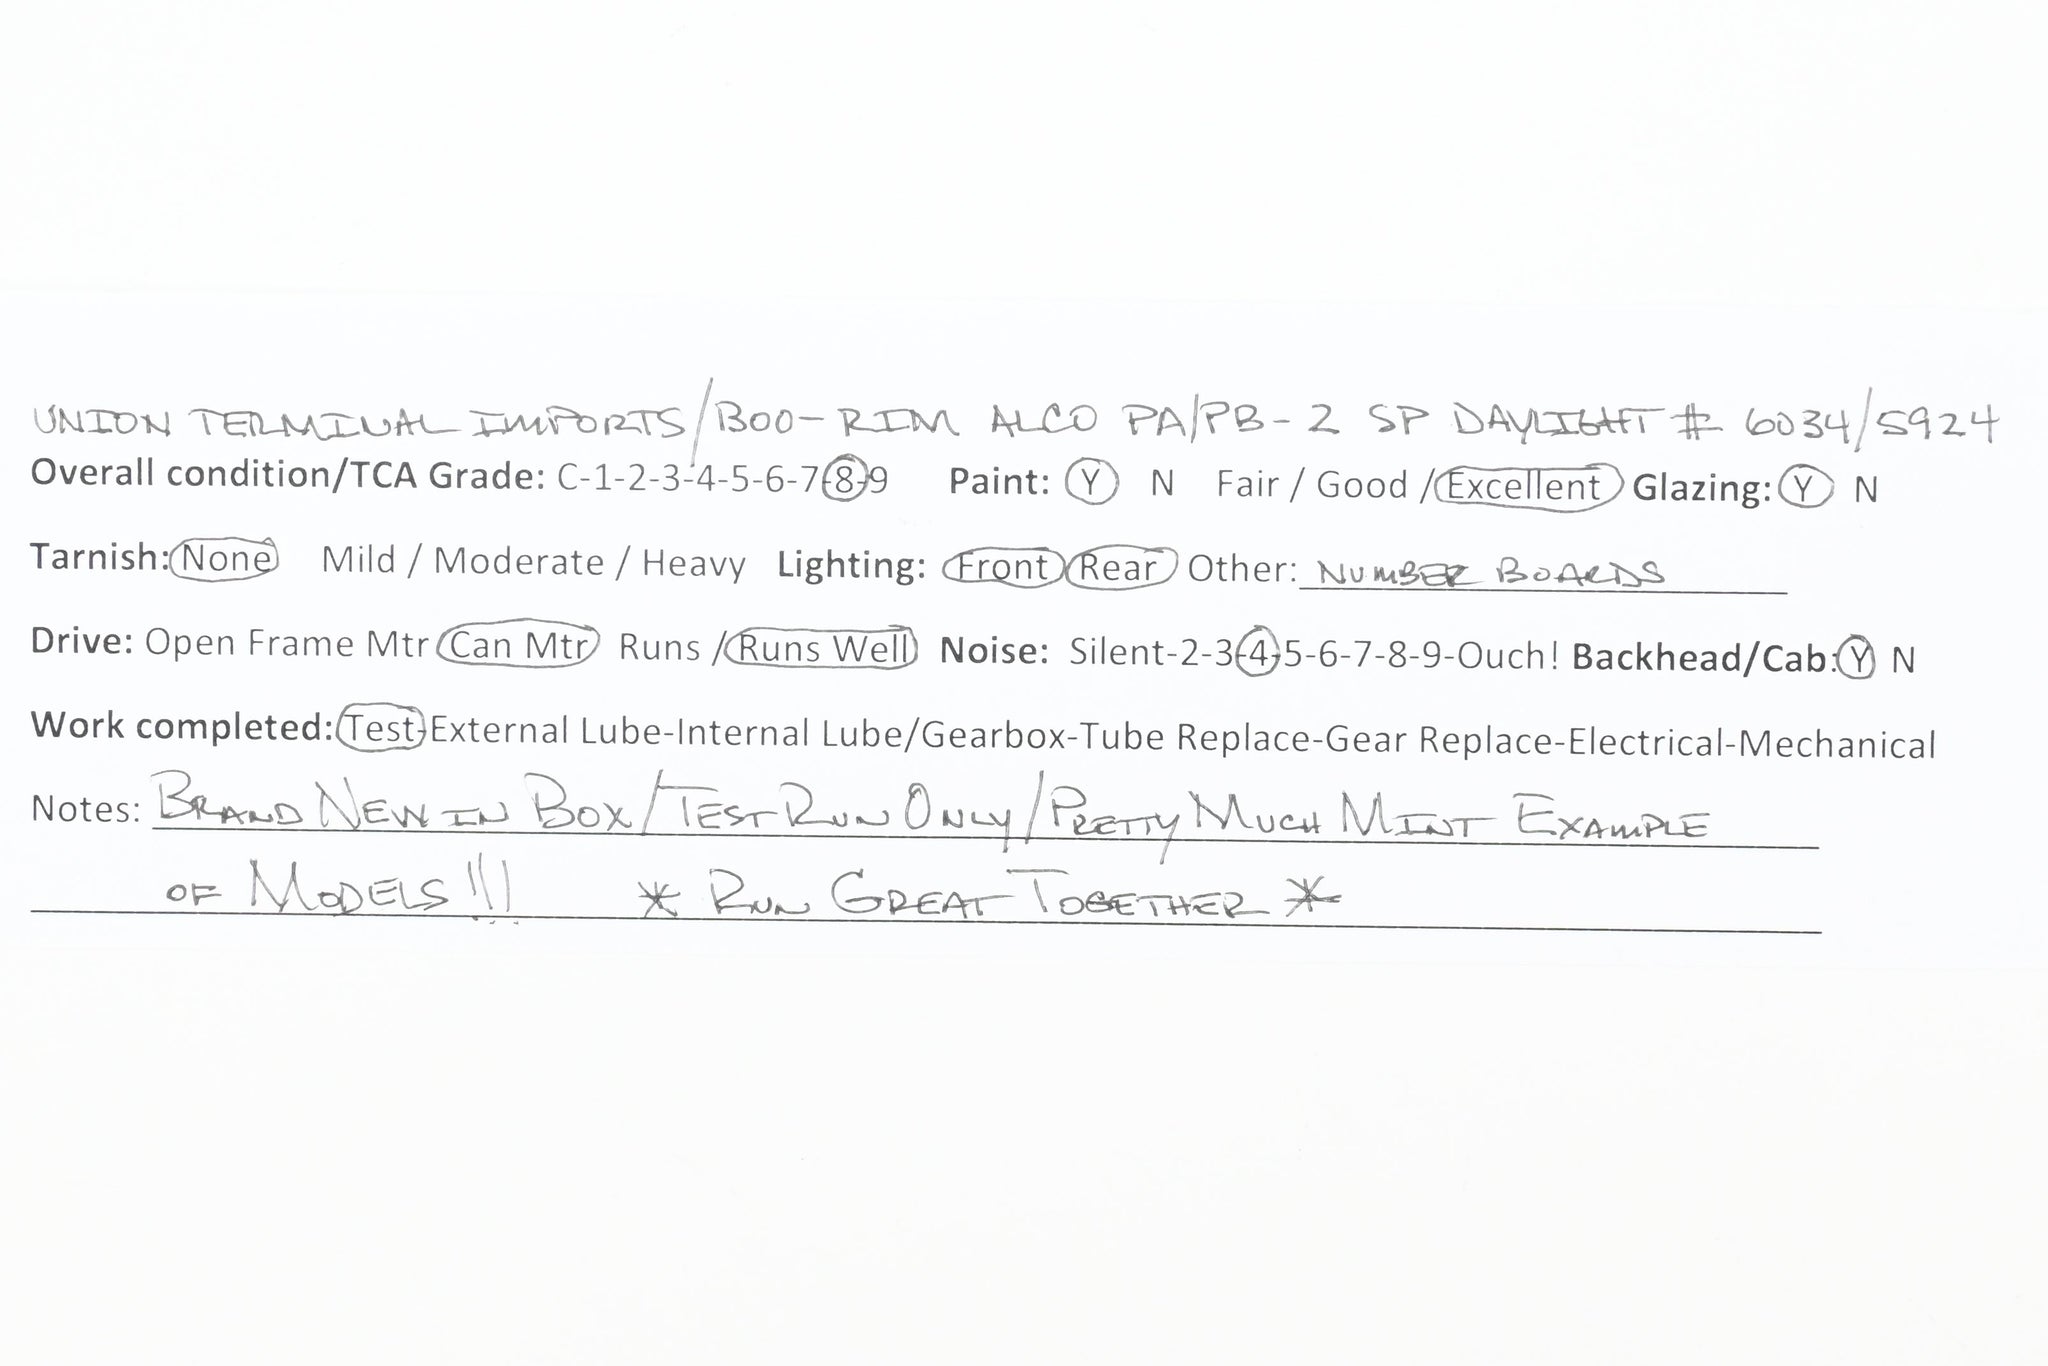 UNION TERMINAL IMPORTS/BOO-RIM ALCO PA/PB-2 SP DAYLIGHT # 6034/5924
Overall condition/TCA Grade: C-1-2-3-4-5-6-7-8-9 Paint: Y N Fair / Good / Excellent Glazing: Y N
Tarnish: None Mild / Moderate / Heavy Lighting: Front Rear Other: NUMBER BOARDS
Drive: Open Frame Mtr Can Mtr Runs / Runs Well Noise: Silent-2-3-4-5-6-7-8-9-Ouch! Backhead/Cab: Y N
Work completed: Test-External Lube-Internal Lube/Gearbox-Tube Replace-Gear Replace-Electrical-Mechanical
Notes: BRAND NEW IN BOX/TEST RUN ONLY/PRETTY MUCH MINT EXAMPLE
OF MODELS!!! * RUN GREAT TOGETHER *